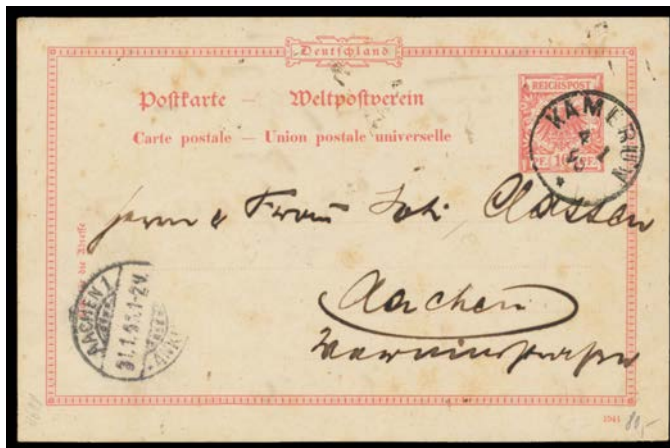 Deutschland
Postkarte — Weltpostverein
Carte postale — Union postale universelle
REICHSPOST
10
KAMERUN
Herrn & Frau Joh. Classen
Aachen
AACHEN 1
31.1. 1-2V.
80,-